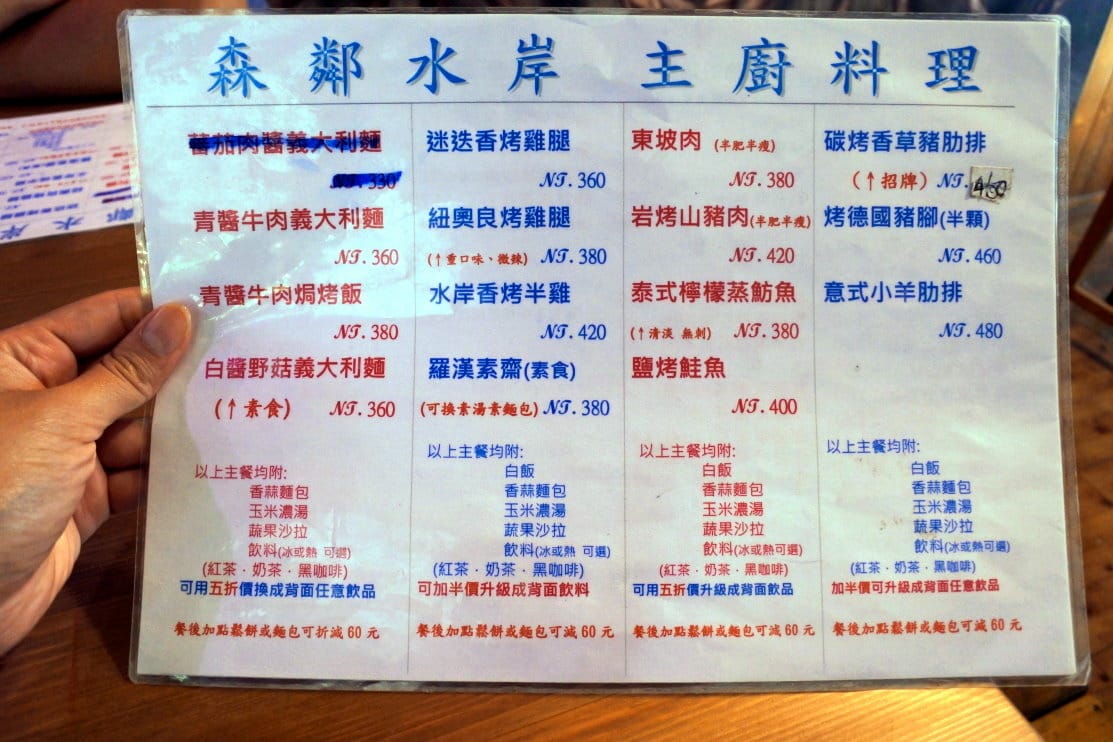 森鄰水岸 主廚料理
蕃茄肉醬義大利麵
NT. 330
青醬牛肉義大利麵
NT. 360
青醬牛肉焗烤飯
NT. 380
白醬野菇義大利麵
(↑素食) NT. 360
以上主餐均附:
香蒜麵包
玉米濃湯
蔬果沙拉
飲料(冰或熱 可選)
(紅茶．奶茶．黑咖啡)
可用五折價換成背面任意飲品
餐後加點鬆餅或麵包可折減 60 元
迷迭香烤雞腿
NT. 360
紐奧良烤雞腿
(↑重口味、微辣) NT. 380
水岸香烤半雞
NT. 420
羅漢素齋(素食)
(可換素湯素麵包) NT. 380
以上主餐均附:
白飯
香蒜麵包
玉米濃湯
蔬果沙拉
飲料(冰或熱 可選)
(紅茶．奶茶．黑咖啡)
可加半價升級成背面飲料
餐後加點鬆餅或麵包可減 60 元
東坡肉 (半肥半瘦)
NT. 380
岩烤山豬肉(半肥半瘦)
NT. 420
泰式檸檬蒸魴魚
(↑清淡 無刺) NT. 380
鹽烤鮭魚
NT. 400
以上主餐均附:
白飯
香蒜麵包
玉米濃湯
蔬果沙拉
飲料(冰或熱可選)
(紅茶．奶茶．黑咖啡)
可用五折價升級成背面飲品
餐後加點鬆餅或麵包可減 60 元
碳烤香草豬肋排
(↑招牌) NT. 460
烤德國豬腳(半顆)
NT. 460
意式小羊肋排
NT. 480
以上主餐均附:
白飯
香蒜麵包
玉米濃湯
蔬果沙拉
飲料(冰或熱 可選)
(紅茶．奶茶．黑咖啡)
加半價可升級成背面任意飲品
餐後加點鬆餅或麵包可減 60 元